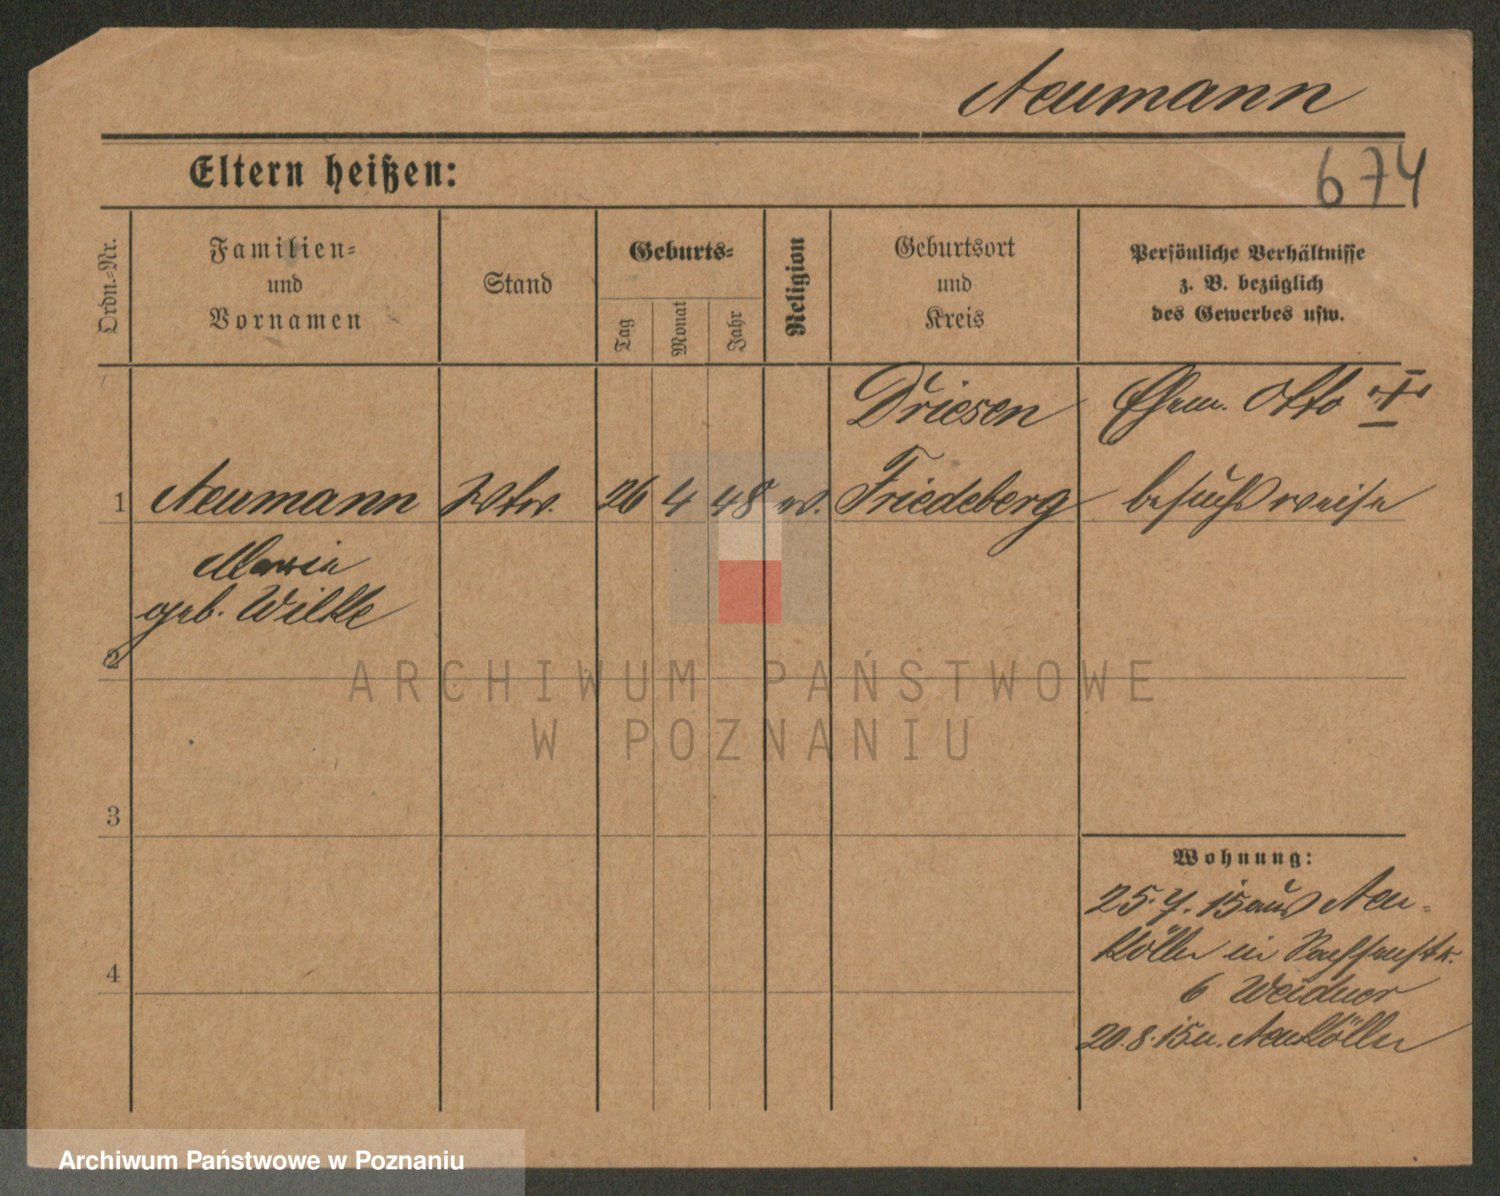 Neumann
Eltern heißen:
674
Ordn.-Nr.
Familien-
und
Vornamen
Stand
Geburts-
Tag
Monat
Jahr
Religion
Geburtsort
und
Kreis
Persönliche Verhältnisse
z. B. bezüglich
des Gewerbes usw.
Driesen
Ehem. Otto †
1
Neumann
Wtw.
26
4
48
ev.
Friedeberg
besuchsweise
Marie
geb. Wilke
2
ARCHIWUM PAŃSTWOWE
W POZNANIU
3
Wohnung:
25.7.15 aus Neu-
kölln in Sachsenstr.
4
6 Weidner
20.8.15 n. Neukölln
Archiwum Państwowe w Poznaniu